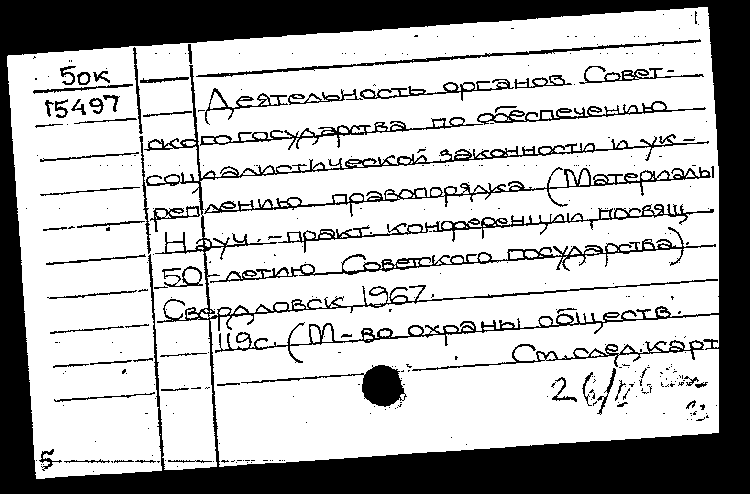 5ок
15497
Деятельность органов Совет-
ского государства по обеспечению
социалистической законности и ук-
реплению правопорядка. (Материалы
Науч.-практ. конференции, посвящ.
50-летию Советского государства).
Свердловск, 1967.
119с. (М-во охраны обществ.
См. след. карт
5